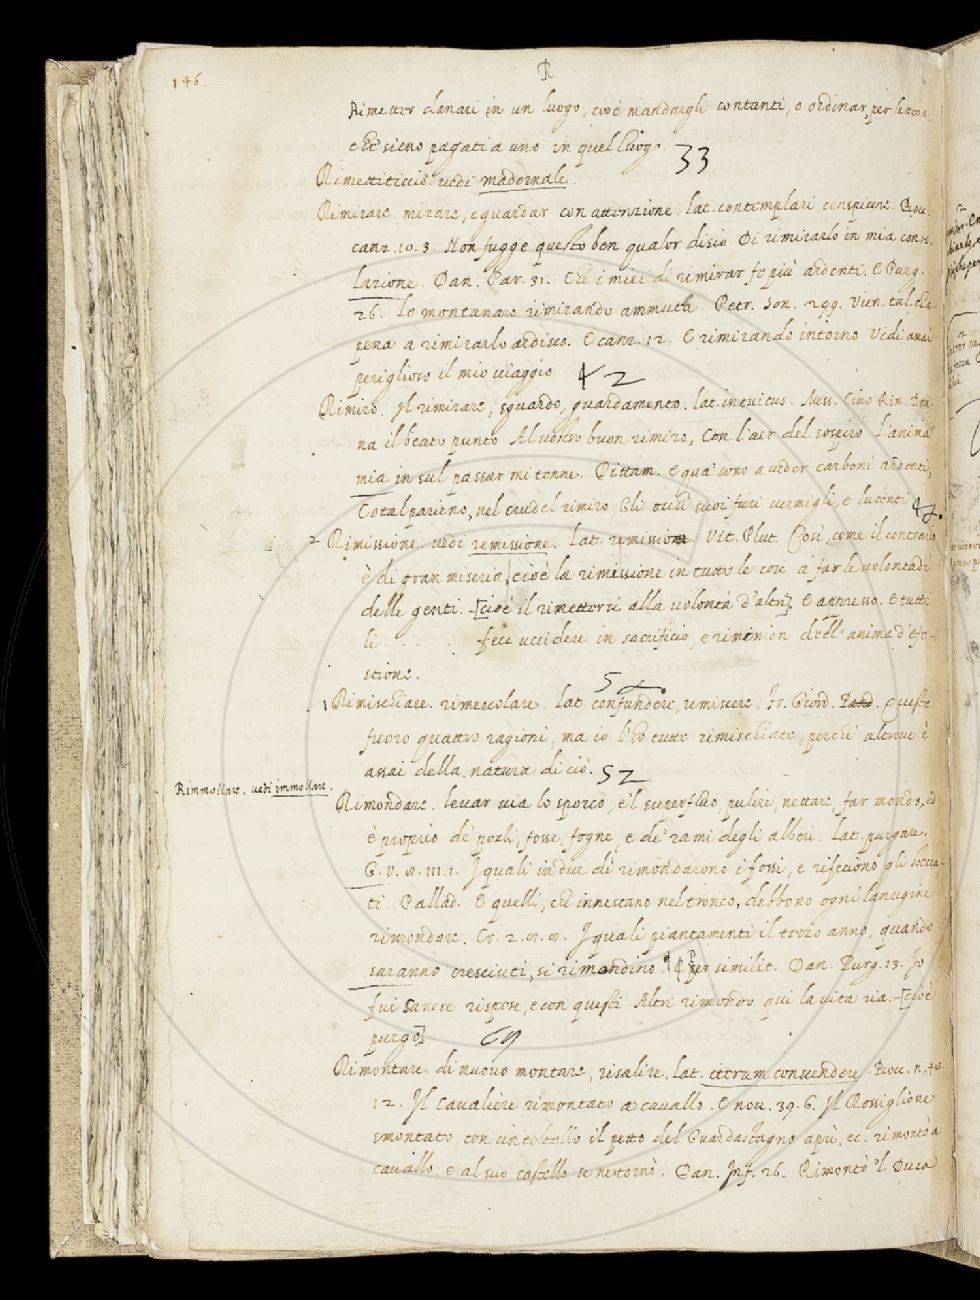 146.
R
Rimetter danari in un luogo, cioè mandargli contanti, o ordinar, per lettera,
che sieno pagati a uno in quel luogo. 33
Rimettiticcio. vedi madornale.
Rimirare. mirare, e guardar con attenzione. lat. contemplari conspicere. Bocc.
canz. 10. 3. Non fugge questo ben qualor disio Di rimirarlo in mia conso-
lazione. Dan. Par. 31. Che i miei di rimirar fe più ardenti. E Purg.
26. Lo montanaro rimirando ammuta. Petr. Son. 299. Vien tal ch'a
pena a rimirarlo ardisco. E canz. 12. E rimirando intorno Vidi assai
periglioso il mio viaggio 42
Rimiro. Il rimirare, sguardo, guardamento. lat. intuitus. Mess. Cino Rin. Don-
na il beato punto Al vostro buon rimiro, Con l'aer del sospiro L'anima
mia in sul passar mi tenne. Dittam. E qua' sono a veder carboni ardenti,
Cotal parieno, nel crudel rimiro, Gli occhi suoi fuci vermigli, e lucenti
2 Rimissione. vedi remissione. Lat. remissio. Vit. Plut. Così, come il contrario
è di gran miseria, cioè la rimissione in tutte le cose a far le volontadi
delle genti. [cioè il rimettersi alla volontà d'altri]. E appresso. E tutti
li . . . . fece uccidere in sacrificio, e rimission dell' anima d'Efe-
stione. 5
1 Rimischiare. rimescolare. lat. confundere, remiscere. Fr. Giord. Pred. Queste
fuoro quattro ragioni, ma io l'ho tutte rimischiate, perchè altrove è
assai della natura di ciò. 52
Rimmollare. vedi immollare.
Rimondare. levar via lo sporco, e'l superfluo, pulire, nettare, far mondo, ed
è proprio de' pozzi, fosse, fogne, e de' rami degli alberi. Lat. purgare.
G. V. 9. 111. 1. I quali in due dì rimondarono i fossi, e rifeciono gli stecca-
ti. Pallad. E quelli, che innestano nel tronco, debbono ogni lanugine
rimondare. Cr. 2. I quali piantamenti il terzo anno, quando
saranno cresciuti, si rimondino. ¶ Per similit. Dan. Purg. 13. Io
fui Sanese rispose, e con questi Altri rimondo qui la vita ria. [cioè
purgo] 69
Rimontare. di nuovo montare, risalire. lat. iterum conscendere. Bocc. n. 40.
12. Il Cavaliere rimontato a cavallo. E nov. 39. 6. Il Rossiglione
smontato, con un coltello il petto del Guardastagno aprì, ec. rimontò a
cavallo, e al suo castello se ne tornò. Dan. Inf. 26. Rimontò 'l Duca